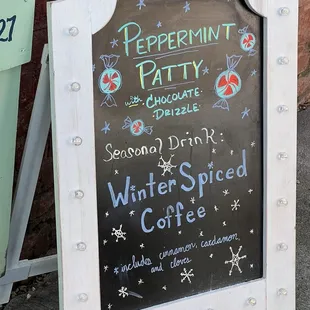 27
Peppermint
Patty
with Chocolate
Drizzle
Seasonal Drink:
Winter Spiced
Coffee
includes cinnamon, cardamom,
and cloves